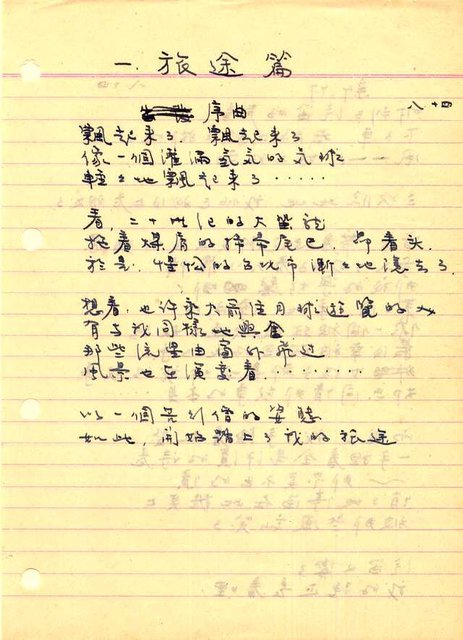 一. 旅途篇
序曲
八、十四
飄起來了 飄起來了
像一個灌滿氫氣的氣球
輕々地飄起來了‥‥‥
看,二十世紀的大蜑龍
拖着煤屑的掃帚尾巴,昂着頭
於是,惺忪的 市漸々地遠去了
想着,也許乘火箭往月球遊覽的人
有与我同樣地興奮
那些流星由窗外飛过
風景也在演變着‥‥‥‥
以一個告別僧的姿態
如此,開始踏上了我的旅途